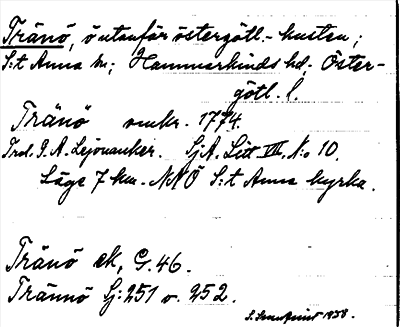 Tränö, ö utanför östergötl.-kusten;
S:t Anna sn; Hammarkinds hd, Öster-
götl. l.
Tränö omkr. 1774.
Trol. P. A. SjA. Litt VII, N:o 10.
Läge 7 km. NNÖ S:t Anna kyrka.
Tränö ek, G. 46.
Trännö Sj: 251 o. 252.
1938.